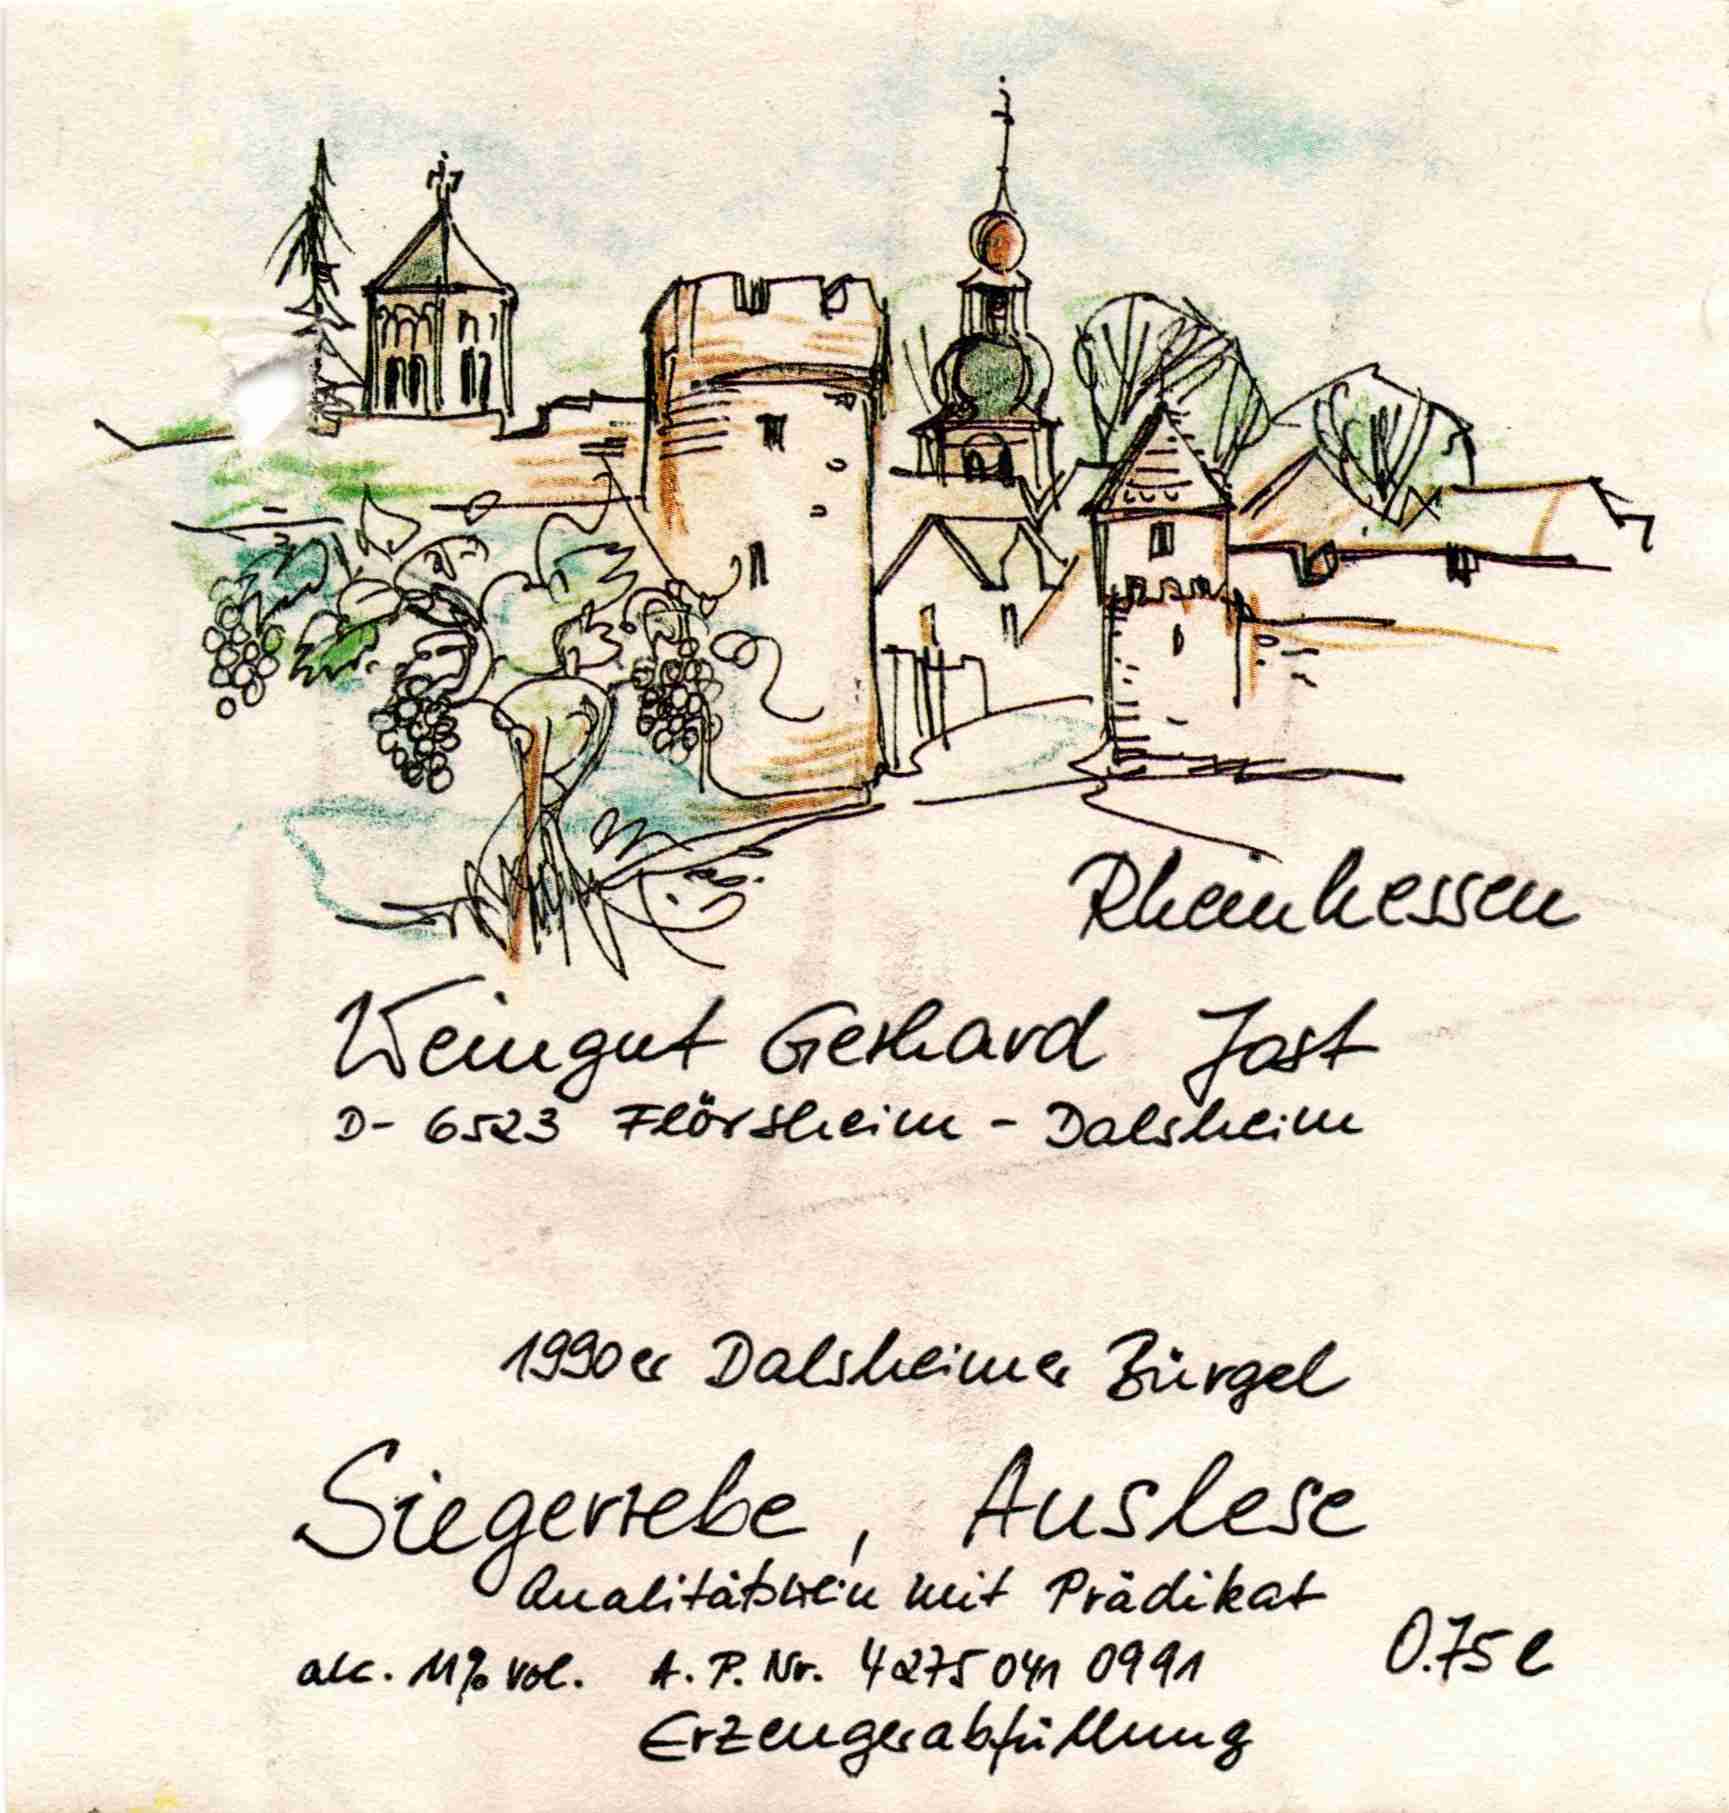 Rheinhessen
Weingut Gerhard Jost
D- 6523 Flörsheim - Dalsheim
1990er Dalsheimer Bürgel
Siegerrebe, Auslese
Qualitätswein mit Prädikat
alc. 11% vol. A. P. Nr. 4 275 041 09 91
0.75 l
Erzeugerabfüllung